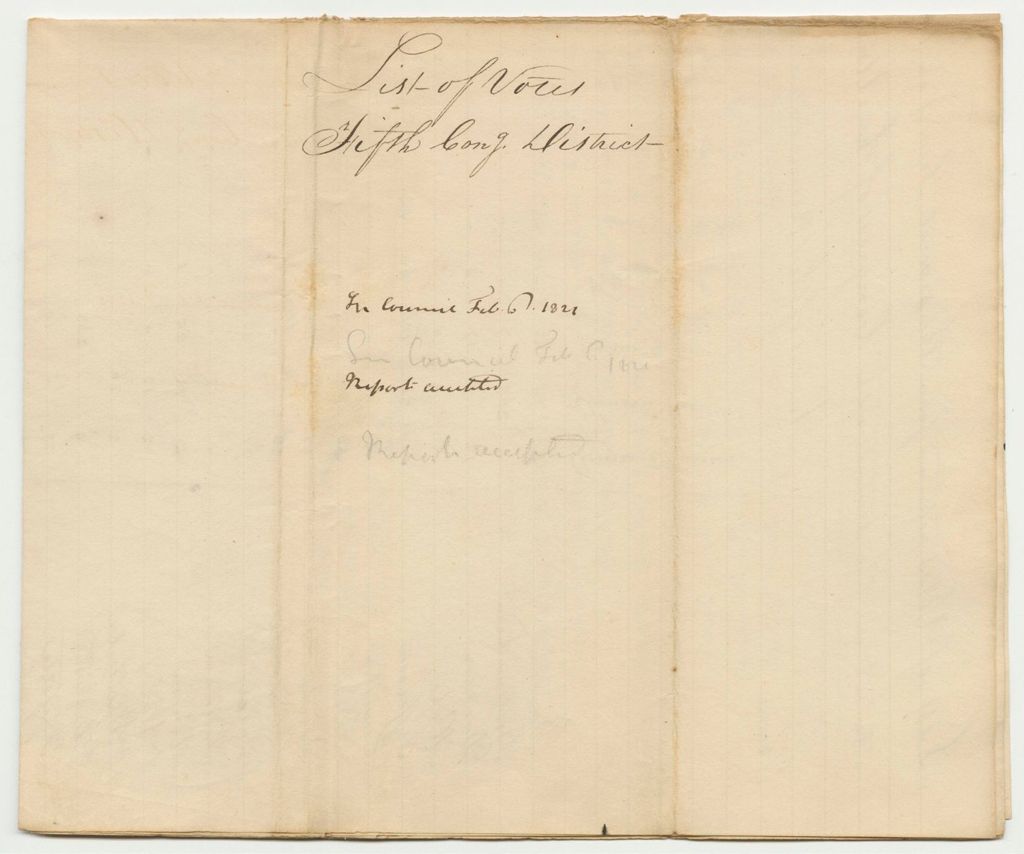 List of Votes
Fifth Cong. District
In Council Feb. 6. 1821
In Council Feb 6 1821
Report accepted
Report accepted